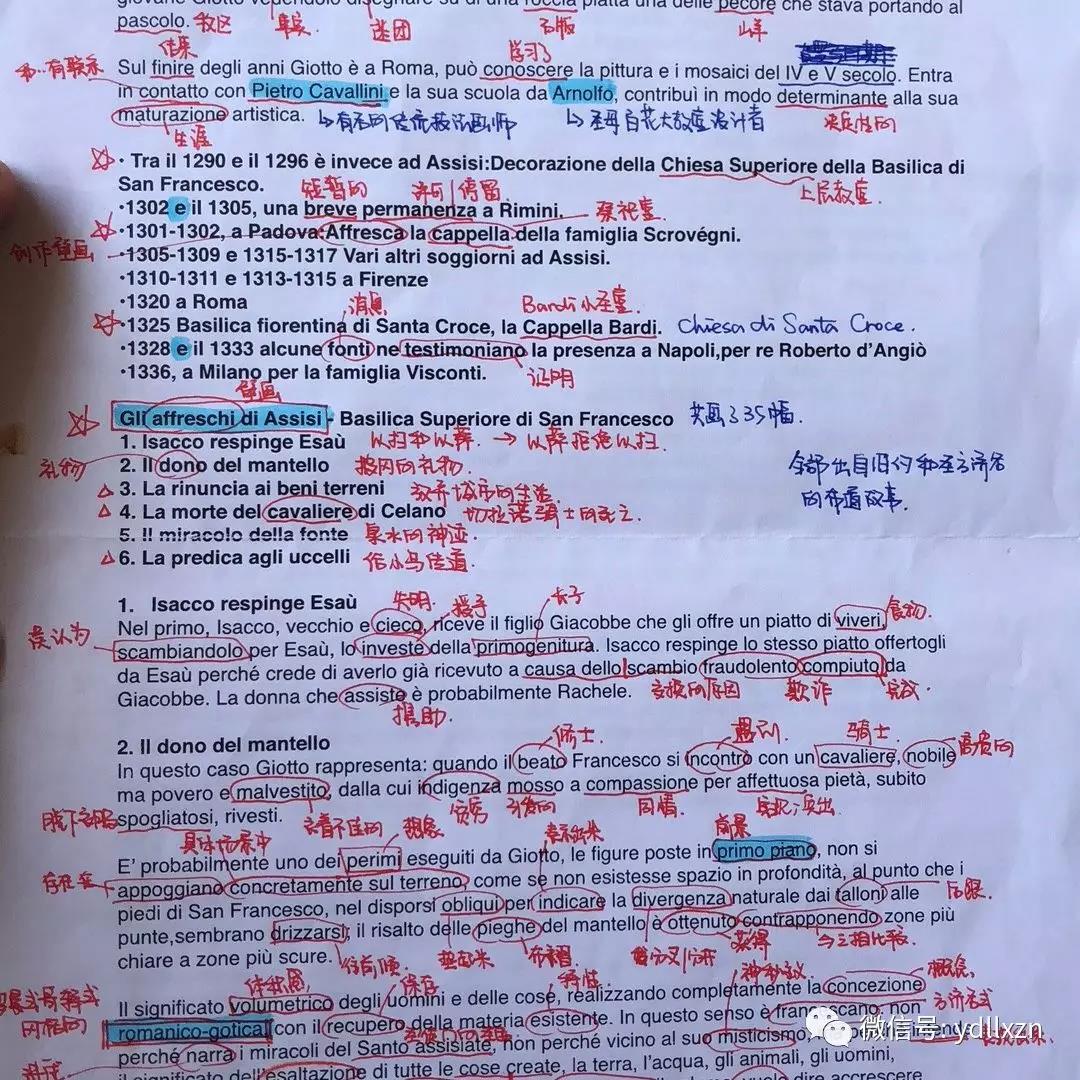 giovane Giotto vedendolo disegnare su di una roccia piatta una delle pecore che stava portando al
pascolo. 牧区 石版 山羊
结果 学习了
Sul finire degli anni Giotto è a Roma, può conoscere la pittura e i mosaici del IV e V secolo. Entra
in contatto con Pietro Cavallini e la sua scuola da Arnolfo, contribuì in modo determinante alla sua
maturazione artistica. ↳圣母百花大教堂设计者 决定性的
生涯
☆ • Tra il 1290 e il 1296 è invece ad Assisi:Decorazione della Chiesa Superiore della Basilica di
San Francesco. 短暂的 许可/停留 上层教堂.
•1302 e il 1305, una breve permanenza a Rimini. 祭祀堂
☆ •1301-1302, a Padova:Affresca la cappella della famiglia Scrovégni.
创作壁画 •1305-1309 e 1315-1317 Vari altri soggiorni ad Assisi.
•1310-1311 e 1313-1315 a Firenze
•1320 a Roma 消息 Bardi小圣堂.
☆ •1325 Basilica fiorentina di Santa Croce, la Cappella Bardi. Chiesa di Santa Croce.
•1328 e il 1333 alcune fonti ne testimoniano la presenza a Napoli,per re Roberto d'Angiò
•1336, a Milano per la famiglia Visconti. 证明
壁画
☆ Gli affreschi di Assisi - Basilica Superiore di San Francesco 共画了35幅.
1. Isacco respinge Esaù 以扫和以撒. → 以撒拒绝以扫.
礼物 2. Il dono del mantello 披风的礼物. 全部出自旧约和圣方济各
△ 3. La rinuncia ai beni terreni 放弃城市的生活 的布道故事.
△ 4. La morte del cavaliere di Celano 切拉诺骑士的死亡.
5. Il miracolo della fonte 泉水的神迹.
△ 6. La predica agli uccelli 给小鸟传道.
1. Isacco respinge Esaù 失明. 授予 长子
Nel primo, Isacco, vecchio e cieco, riceve il figlio Giacobbe che gli offre un piatto di viveri, 食物.
误认为 scambiandolo per Esaù, lo investe della primogenitura. Isacco respinge lo stesso piatto offertogli
da Esaù perché crede di averlo già ricevuto a causa dello scambio fraudolento compiuto da
Giacobbe. La donna che assiste è probabilmente Rachele. 交换的原因 欺诈 完成.
援助.
2. Il dono del mantello 修士. 遇到. 骑士
In questo caso Giotto rappresenta: quando il beato Francesco si incontrò con un cavaliere, nobile 高贵的
ma povero e malvestito, dalla cui indigenza mosso a compassione per affettuosa pietà, subito
spogliatosi, rivesti. 衣着不佳的 贫穷 同情
前景
E' probabilmente uno dei perimi eseguiti da Giotto, le figure poste in primo piano, non si
存在于 appoggiano concretamente sul terreno, come se non esistesse spazio in profondità, al punto che i
piedi di San Francesco, nel disporsi obliqui per indicare la divergenza naturale dai talloni alle 后跟.
punte,sembrano drizzarsi; il risalto delle pieghe del mantello è ottenuto contrapponendo zone più
chiare a zone più scure. 布褶 分叉/分开 获得 与之相比较
体积感 保存 特性 神秘主义 概念
Il significato volumetrico degli uomini e delle cose, realizzando completamente la concezione
romanico-gotica con il recupero della materia esistente. In questo senso è francescano, non
perché narra i miracoli del Santo assisiate, non perché vicino al suo misticismo,
il significato dell'esaltazione di tutte le cose create, la terra, l'acqua, gli animali, gli uomini,
vuole dire accrescere
微信号: ydllxzn